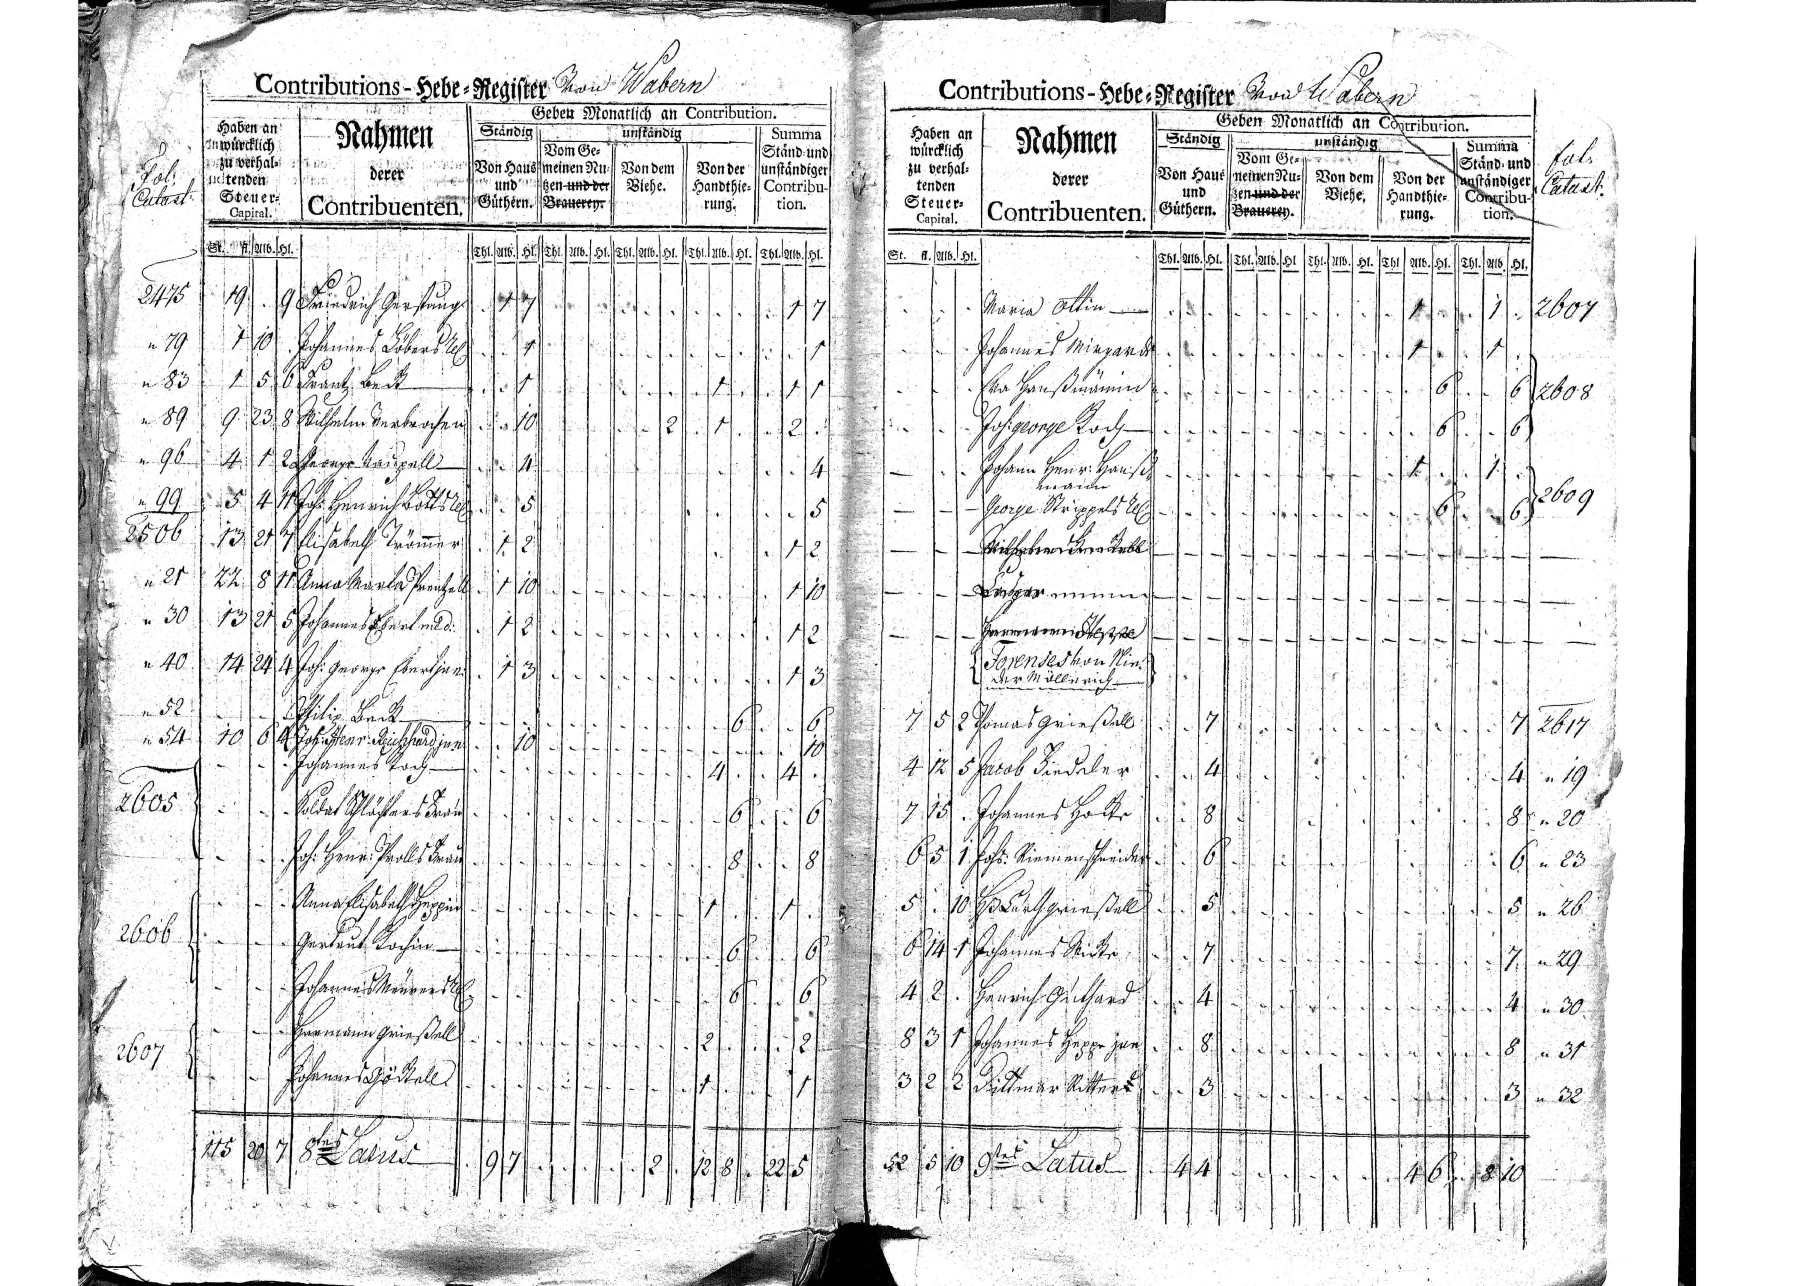 Contributions-Hebe-Register Von Wabern
Geben Monatlich an Contribution.
Haben an würcklich zu verhaltenden Steuer-Capital.
Nahmen derer Contribuenten.
Ständig
unständig
Summa Ständ- und unständiger Contribution.
Von Haus und Güthern.
Vom Gemeinen Nutzen und der Brauerey.
Von dem Viehe.
Von der Handthierung.
Fol: Catast:
St. fl. Alb. Hl. Thl. Alb. Hl. Thl. Alb. Hl. Thl. Alb. Hl. Thl. Alb. Hl. Thl. Alb. Hl.
2475 19 . 9 Friedrich Gerstung 1 7 1 7
" 79 1 10 . Johannes Löbers Rel 1 1
" 83 1 5 6 Frantz Beck 1 1 1 1
" 89 9 23 8 Wilhelm Verbrochen 10 2 1 2 .
" 96 4 1 2 George Vaupell 4 4
" 99 5 4 11 Joh: Henrich Botts Rel 5 5
2506 13 21 7 Elisabeth Trömmer 1 2 1 2
" 21 22 8 11 Anna Maria 1 10 1 10
" 30 13 21 5 Johannes Ebert med: 1 2 1 2
" 40 14 24 4 Joh: George Ebert jun: 1 3 1 3
" 52 Philip Beck 6 6
" 54 10 6 4 Joh: Henr: jun: 10 10
2605 Johannes Koch 4 4 .
Soldat Schlächters Frau 6 6
Joh: Henr: Prolls Frau 8 8
2606 Anna Elisabeth Heppin 1 1 .
Gertrut Kochin 6 6
Johannes Rel 6 6
2607 Hermann Grießell 2 2
Johannes Göckell 1 1
115 20 7 8tes Latus 9 7 2 . 12 8 . 22 5
Contributions-Hebe-Register Von Wabern
Geben Monatlich an Contribution.
Haben an würcklich zu verhaltenden Steuer-Capital.
Nahmen derer Contribuenten.
Ständig
unständig
Summa Ständ- und unständiger Contribution.
Von Haus und Güthern.
Vom Gemeinen Nutzen und der Brauerey.
Von dem Viehe.
Von der Handthierung.
fol. Catast:
St. fl. Alb. Hl. Thl. Alb. Hl. Thl. Alb. Hl. Thl. Alb. Hl. Thl. Alb. Hl. Thl. Alb. Hl.
Maria Ottin 1 1 . 2607
Johannes 1 1 .
Eva Haußmännin 6 6 2608
Joh: George Koch 6 6
Johann Henr: Hauß- 1 1 .
mann 2609
George Strippels Rel 6 6
Hermann Heppe
Forenses von Nie-
der Möllerich
7 5 2 Thomas Grießell 7 7 2617
4 12 5 Jacob Fiedeler 4 4 " 19
7 15 . Johannes Hocke 8 8 " 20
6 5 1 Johs: Riemenschneider 6 6 " 23
5 . 10 Grießell 5 5 " 26
6 14 1 Johannes 7 7 " 29
4 2 . Henrich Guthard 4 4 " 30
8 3 1 Johannes Heppe jun 8 8 " 31
3 2 2 Dittmar Ritter 3 3 " 32
52 5 10 9tes Latus 4 4 4 6 . 8 10